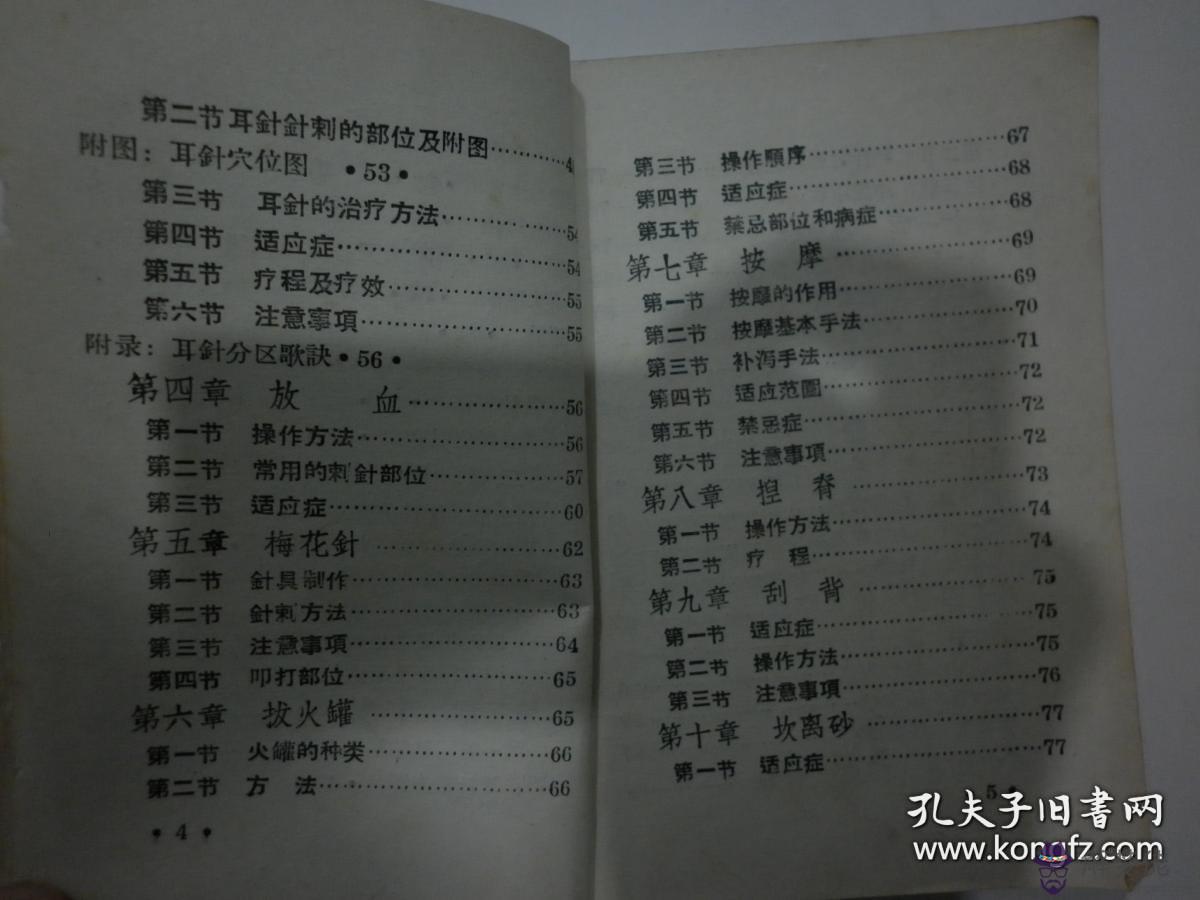 第二节 耳針針刺的部位及附图…………4
附图：耳針穴位图 •53•
第三节 耳針的治疗方法…………54
第四节 适应症…………54
第五节 疗程及疗效…………55
第六节 注意事項…………55
附录：耳針分区歌訣•56•
第四章 放 血…………56
第一节 操作方法…………56
第二节 常用的刺針部位…………57
第三节 适应症…………60
第五章 梅花針…………62
第一节 針具制作…………63
第二节 針刺方法…………63
第三节 注意事項…………64
第四节 叩打部位…………65
第六章 拔火罐…………65
第一节 火罐的种类…………66
第二节 方 法…………66
•4•
第三节 操作順序…………67
第四节 适应症…………68
第五节 禁忌部位和病症…………68
第七章 按 摩…………69
第一节 按摩的作用…………69
第二节 按摩基本手法…………70
第三节 补泻手法…………71
第四节 适应范圍…………72
第五节 禁忌症…………72
第六节 注意事項…………72
第八章 捏 脊…………73
第一节 操作方法…………74
第二节 疗 程…………74
第九章 刮 背…………75
第一节 适应症…………75
第二节 操作方法…………75
第三节 注意事項…………76
第十章 坎离砂…………77
第一节 适应症…………77
5•
孔夫子旧書网
www.kongfz.com